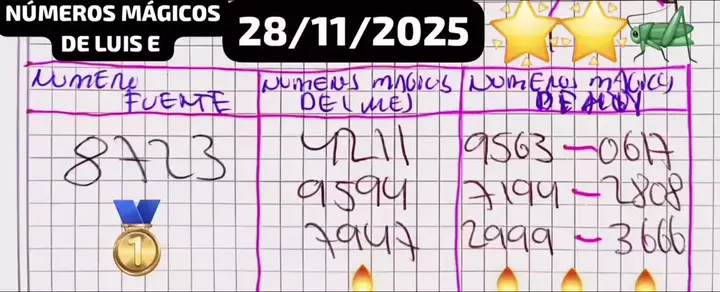 NÚMEROS MÁGICOS
DE LUIS E
28/11/2025
NUMERO
FUENTE
NUMEROS MAGICOS
DEL MES
NUMEROS MAGICOS
DE HOY
8723
4211
9594
7947
9563-0617
7194-2808
2999-3666
1